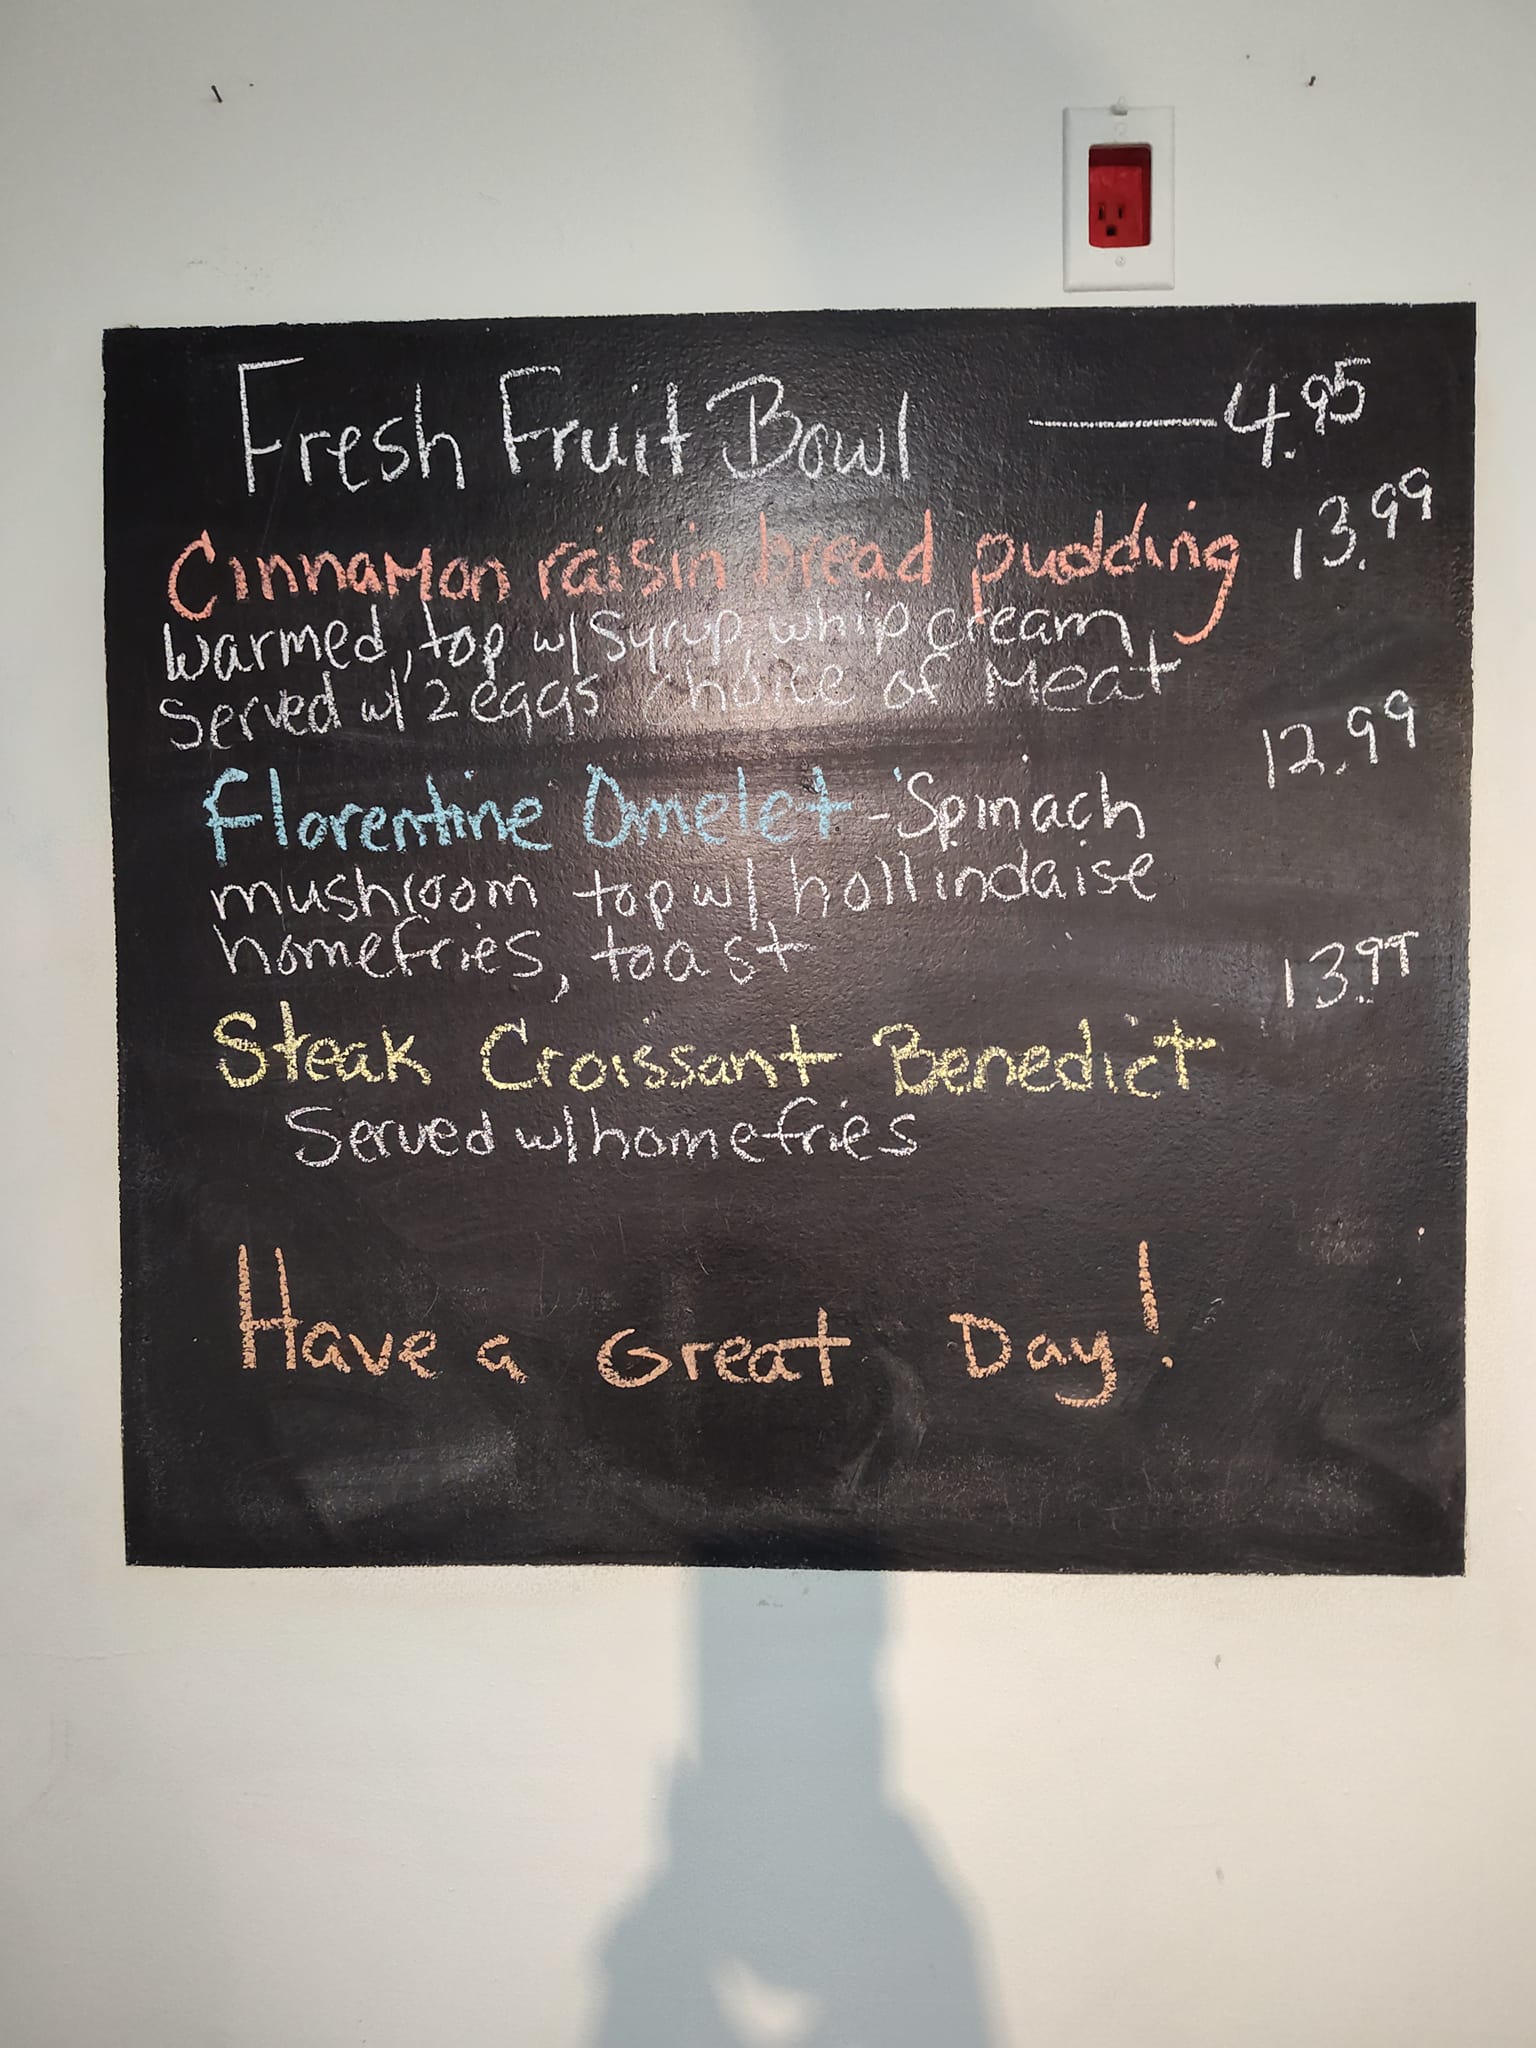 Fresh Fruit Bowl 4.95
Cinnamon raisin bread pudding 13.99
warmed, top w/ syrup, whip cream,
Served w/ 2 eggs choice of Meat
Florentine Omelet - Spinach 12.99
mushroom top w/ hollindaise
homefries, toast
Steak Croissant Benedict 13.99
Served w/ homefries
Have a Great Day!